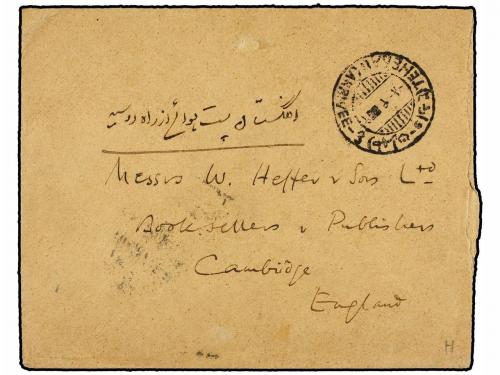 انگلستان پست هوائی از راه روسیه
Messrs W. Heffer & Sons Ltd
Booksellers & Publishers
Cambridge
England
TEHERAN (ARRIVEE-3)
H